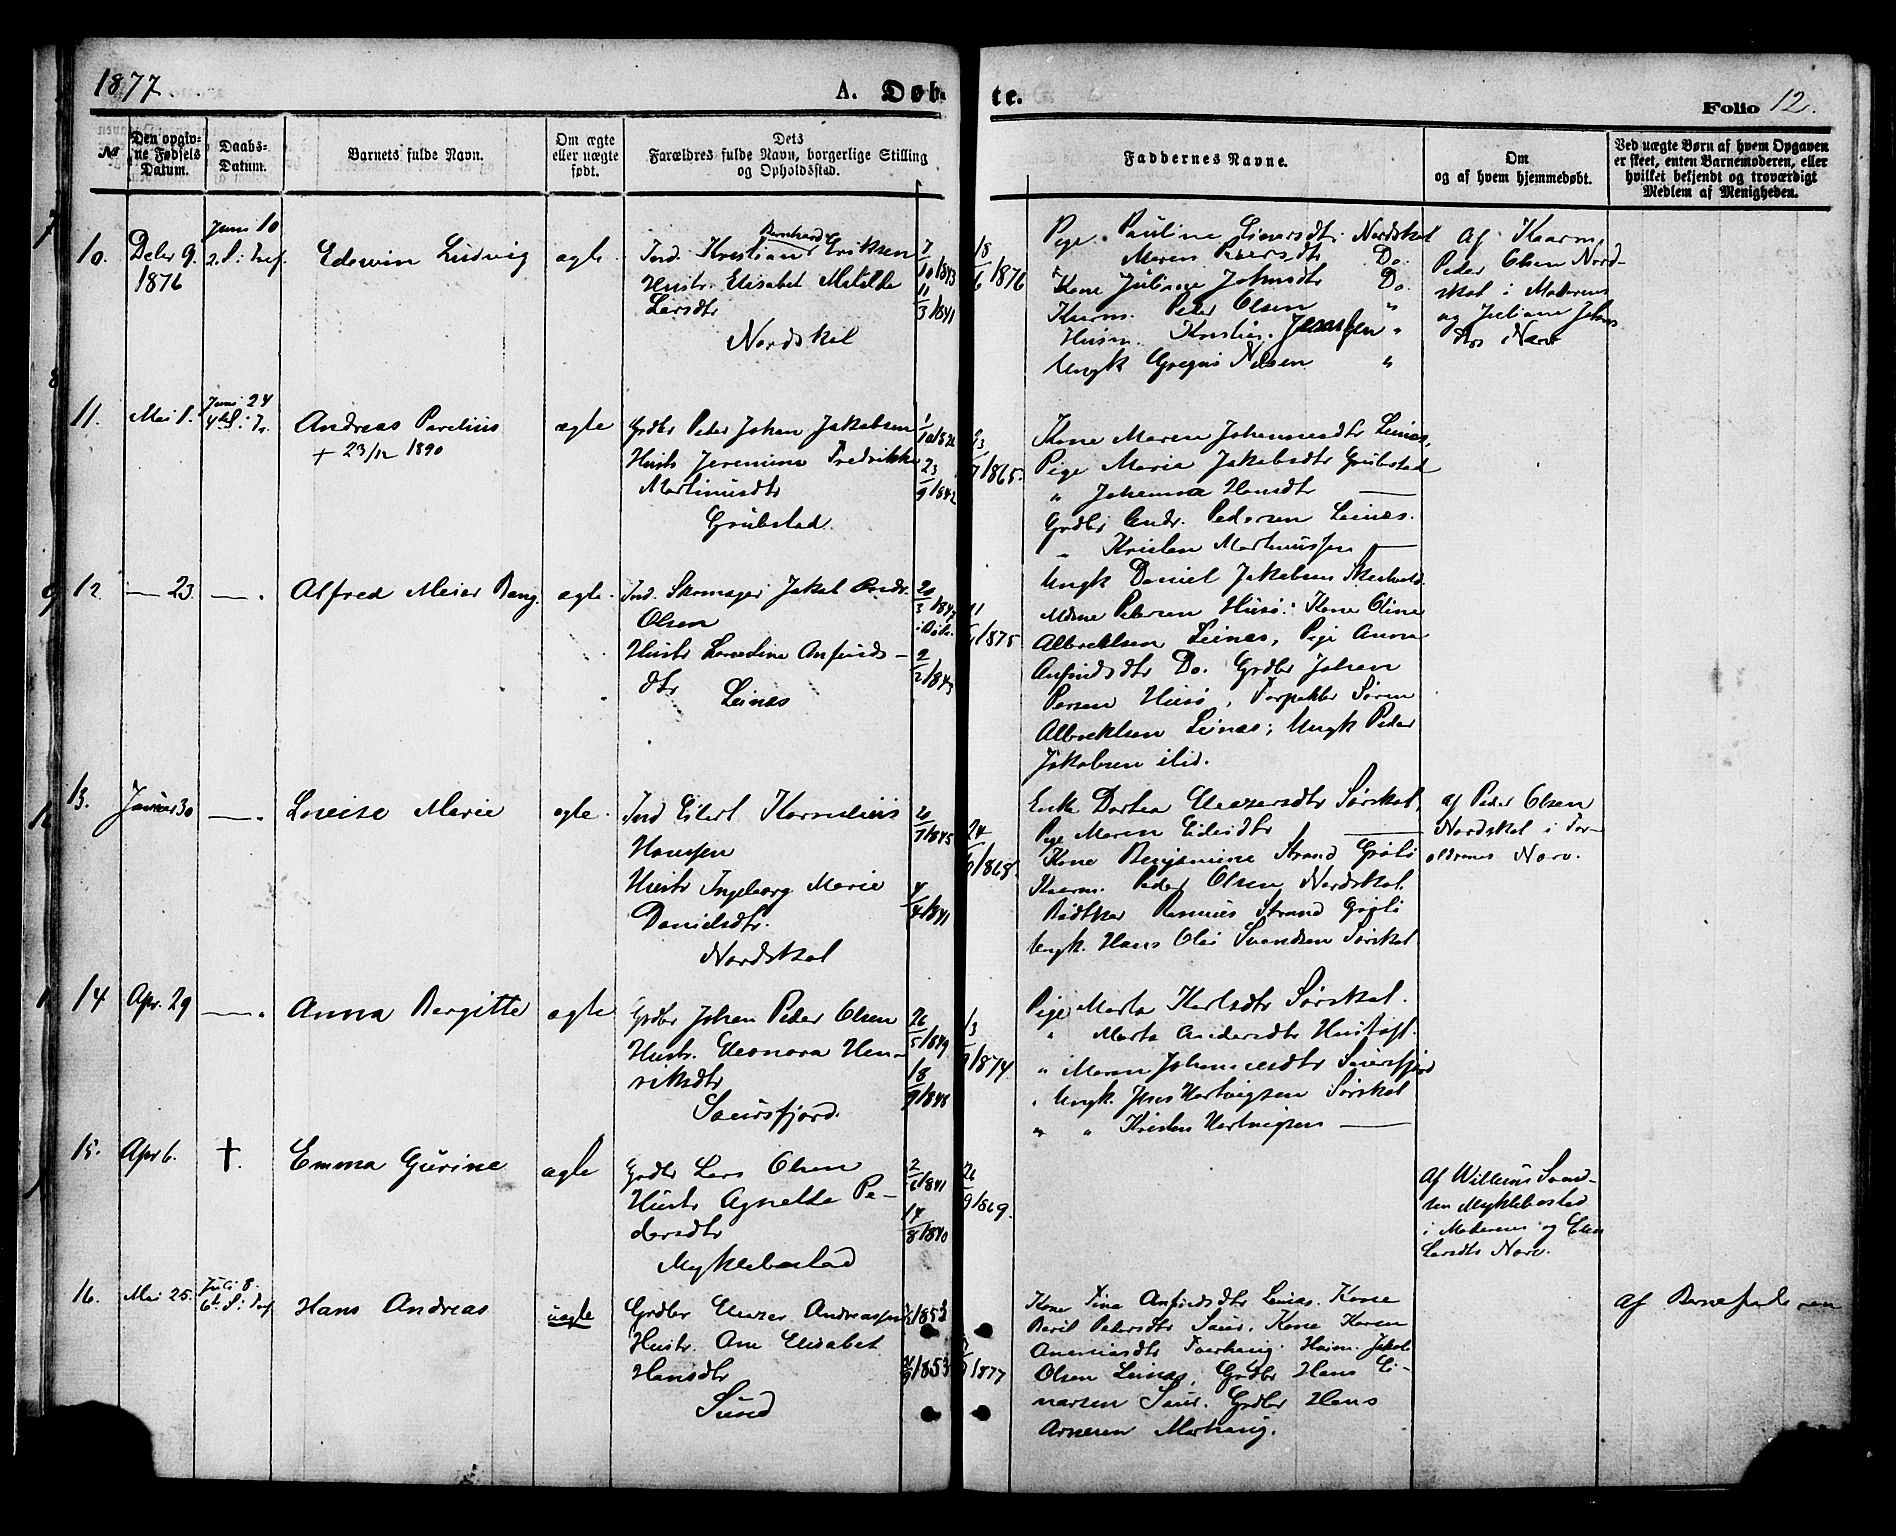 1877
A. Døb-
te.
Folio 12.
№
Den opgiv-
ne Fødsels
Datum.
Daabs-
Datum.
Barnets fulde Navn.
Om ægte
eller uægte
født.
Dets
Forældres fulde Navn, borgerlige Stilling
og Opholdsstad.
Faddernes Navne.
Om
og af hvem hjemmedøbt.
Ved uægte Børn af hvem Opgaven
er skeet, enten Barnemoderen, eller
hvilket bekjendt og troværdigt
Medlem af Menigheden.
10.
Decbr 9.
1876
Juni 10
2. S. i Tref.
Edevin Ludvig
ægte
Ind. Kristian Bernhard Eriksen
Hustr. Elisabet Matilde
Larsdtr
Nordskot
7/10 1843
11/3 1841
18/6 1876
Pige Pauline Einarsdtr Nordskot
Maren Peersdtr Do.
Kone Juliane Johnsdtr Do.
Kaarm. Peder Olsen "
Husm. Kristian "
Ungk Gregus Nilsen "
Af Kaarm.
Peder Olsen Nord-
skot i Moderens
og Juliane Johns
dtrs Nærv
11.
Mai 1.
Juni 24
4de S. i Tr.
Andreas Parelius
+ 23/12 1890
ægte
Grdbr Peder Johan Jakobsen
Hustr Jeremine Fredrikke
Martinusdtr
Grübstad.
23/9 1842
/7 1865.
Kone Maren Johannesdtr Leines,
Pige Maria Jakobsdtr Grübstad
" Johanna Hansdtr —
Grdbr Andr. Pedersen Leines.
" Kristen Martinussen —
Ungk Daniel Jakobsen
12
— 23.
— .
Alfred Meier Bang.
ægte.
Ind. Skomager Jakob Andr.
Olsen
Hustr Anfinds-
dtr
Leines
20/3 1847
2/2 1843
11/ 1875.
Petersen Husö. Kone Oline
Albrektsen Leines, Pige Anna
Anfindsdtr Do. Grdbr Johan
Persen Husö, Forpakter Sören
Albrektsen Leines; Ungk Peder
Jakobsen ibid.
13.
Januar 30
— .
Lovise Marie
ægte.
Ind Eilert Kornelius
Hanssen
Hustr Ingeborg Marie
Danielsdtr.
Nordskot
20/7 1845
4/4 1841
24/6 1868.
Enke Dortea Eleazersdtr Sørskot,
Pige Maren Eidisdtr —
Kone Benjamine Strand Grötö
Kaarm. Peder Olsen Nordskot
Bødtker Rasmus Strand Grötö
Ungk. Hans Olai Svendsen Sørskot
af Peder Olsen
Nordskot i For-
ældrenes Nærv.
14
Apr. 29
— .
Anna Bergitte
ægte
Grdbr Johan Peder Olsen
Hustr. Eleonora Hen-
riksdtr
Saursfjord.
26/5 1849
18/9 1848
13/9 1874.
Pige Marta Karlsdtr Sørskot.
" Marta Andersdtr
" Maren Johannesdtr Saursfjord
" Ungk. Jens Hartvigsen Sørskot
" " Kristen Hartvigsen —
15.
Apr 6.
†.
Emma Gurine
ægte
Grdbr Lars Olsen
Hustr Agnette Pe-
dersdtr
Myklebostad
2/6 1841
14/8 1840
26/9 1869.
Af Willems Svend-
sen Myklebostad
i Moderens og
Larsdtr Nærv.
16.
Mai 25.
Juli 8.
6te S. i Tref
Hans Andreas
uægte
Grdbr Eleazer Andreassen
Hustr. Ane Elisabet
Hansdtr
Sund
1853
1853
1877
Kone Tina Anfindsdtr Leines. Kone
Beril Petersdtr Saur, Kone Karen
Ananiasdtr Tverhaug. Husm. Jakob
Olsen Leines, Grdbr Hans Ei-
narsen Saur. Grdbr Hans
Arnesen Morhaug.
Af Barnefaderen